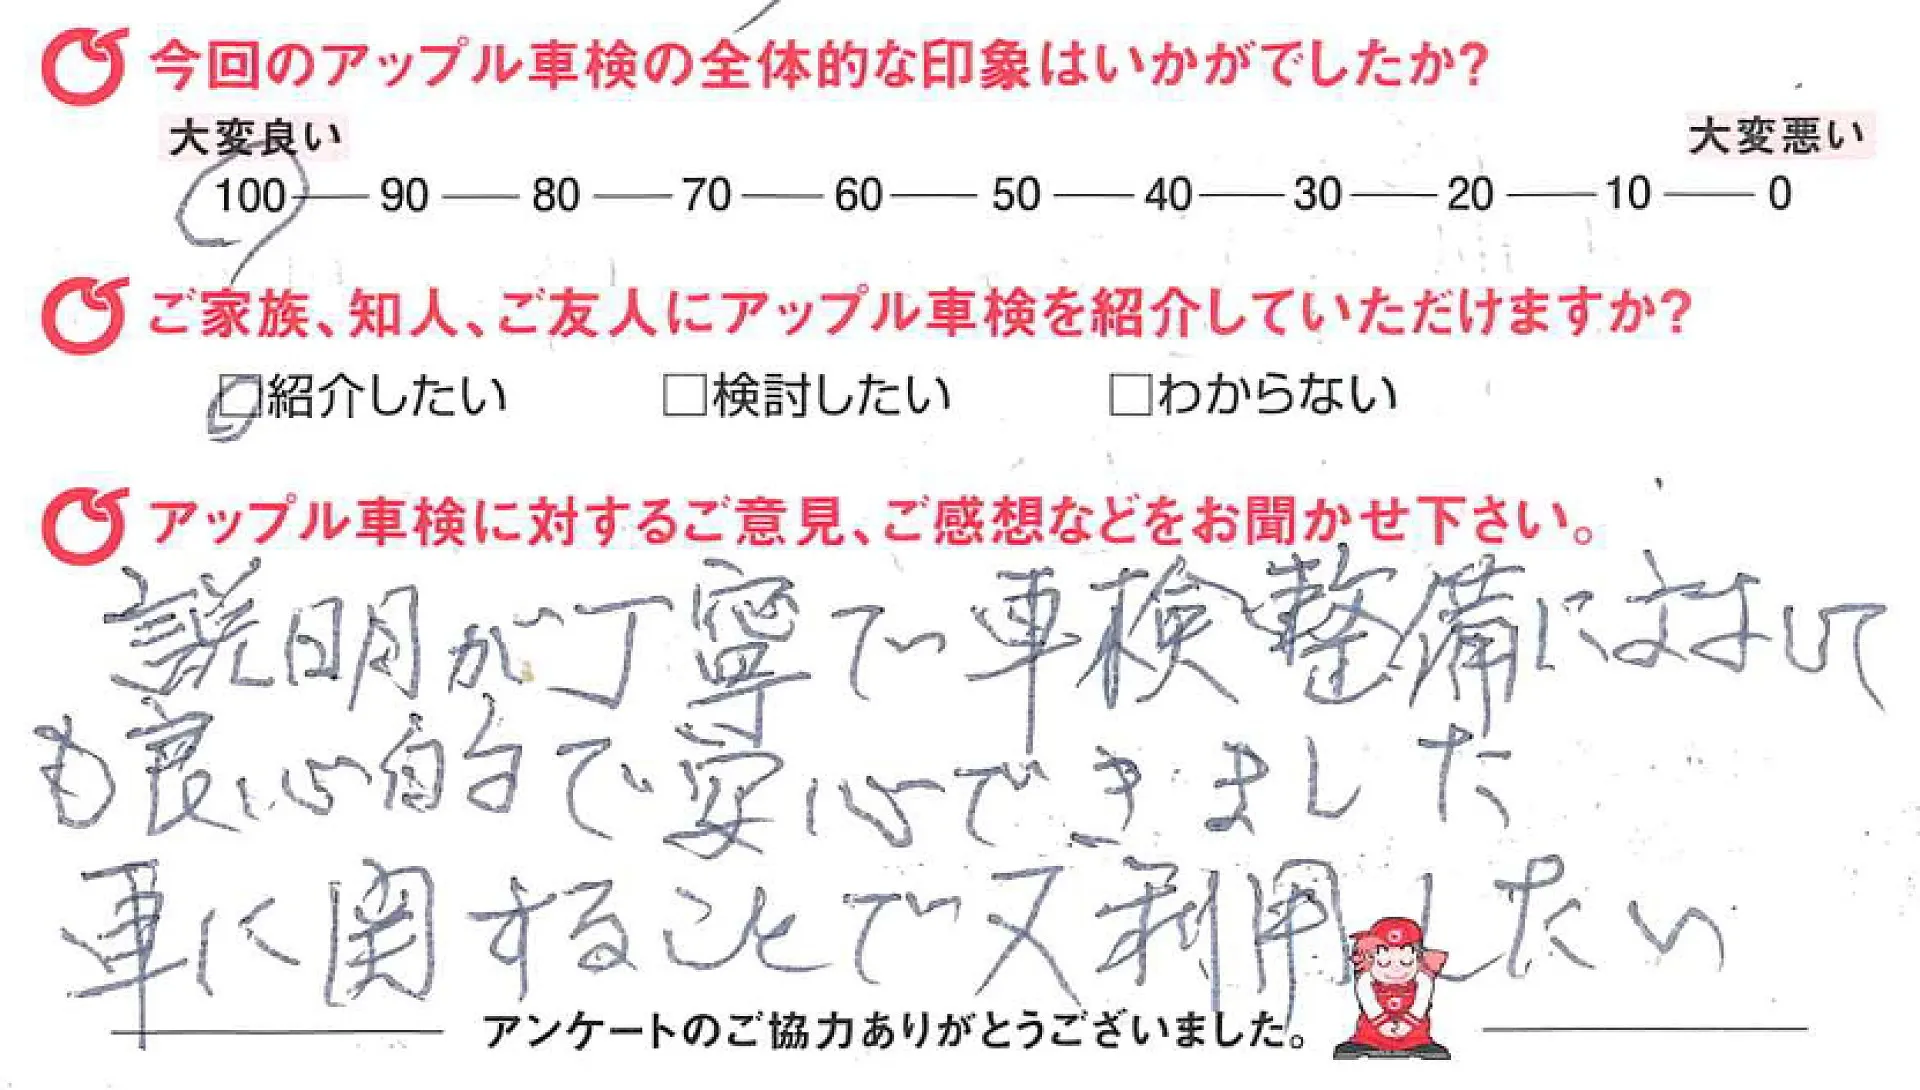 今回のアップル車検の全体的な印象はいかがでしたか?
大変良い 大変悪い
100 90 80 70 60 50 40 30 20 10 0
ご家族、知人、ご友人にアップル車検を紹介していただけますか?
□紹介したい □検討したい □わからない
アップル車検に対するご意見、ご感想などをお聞かせ下さい。
説明が丁寧で車検整備に対して
も良心的で安心できました
車に関することで又利用したい
アンケートのご協力ありがとうございました。